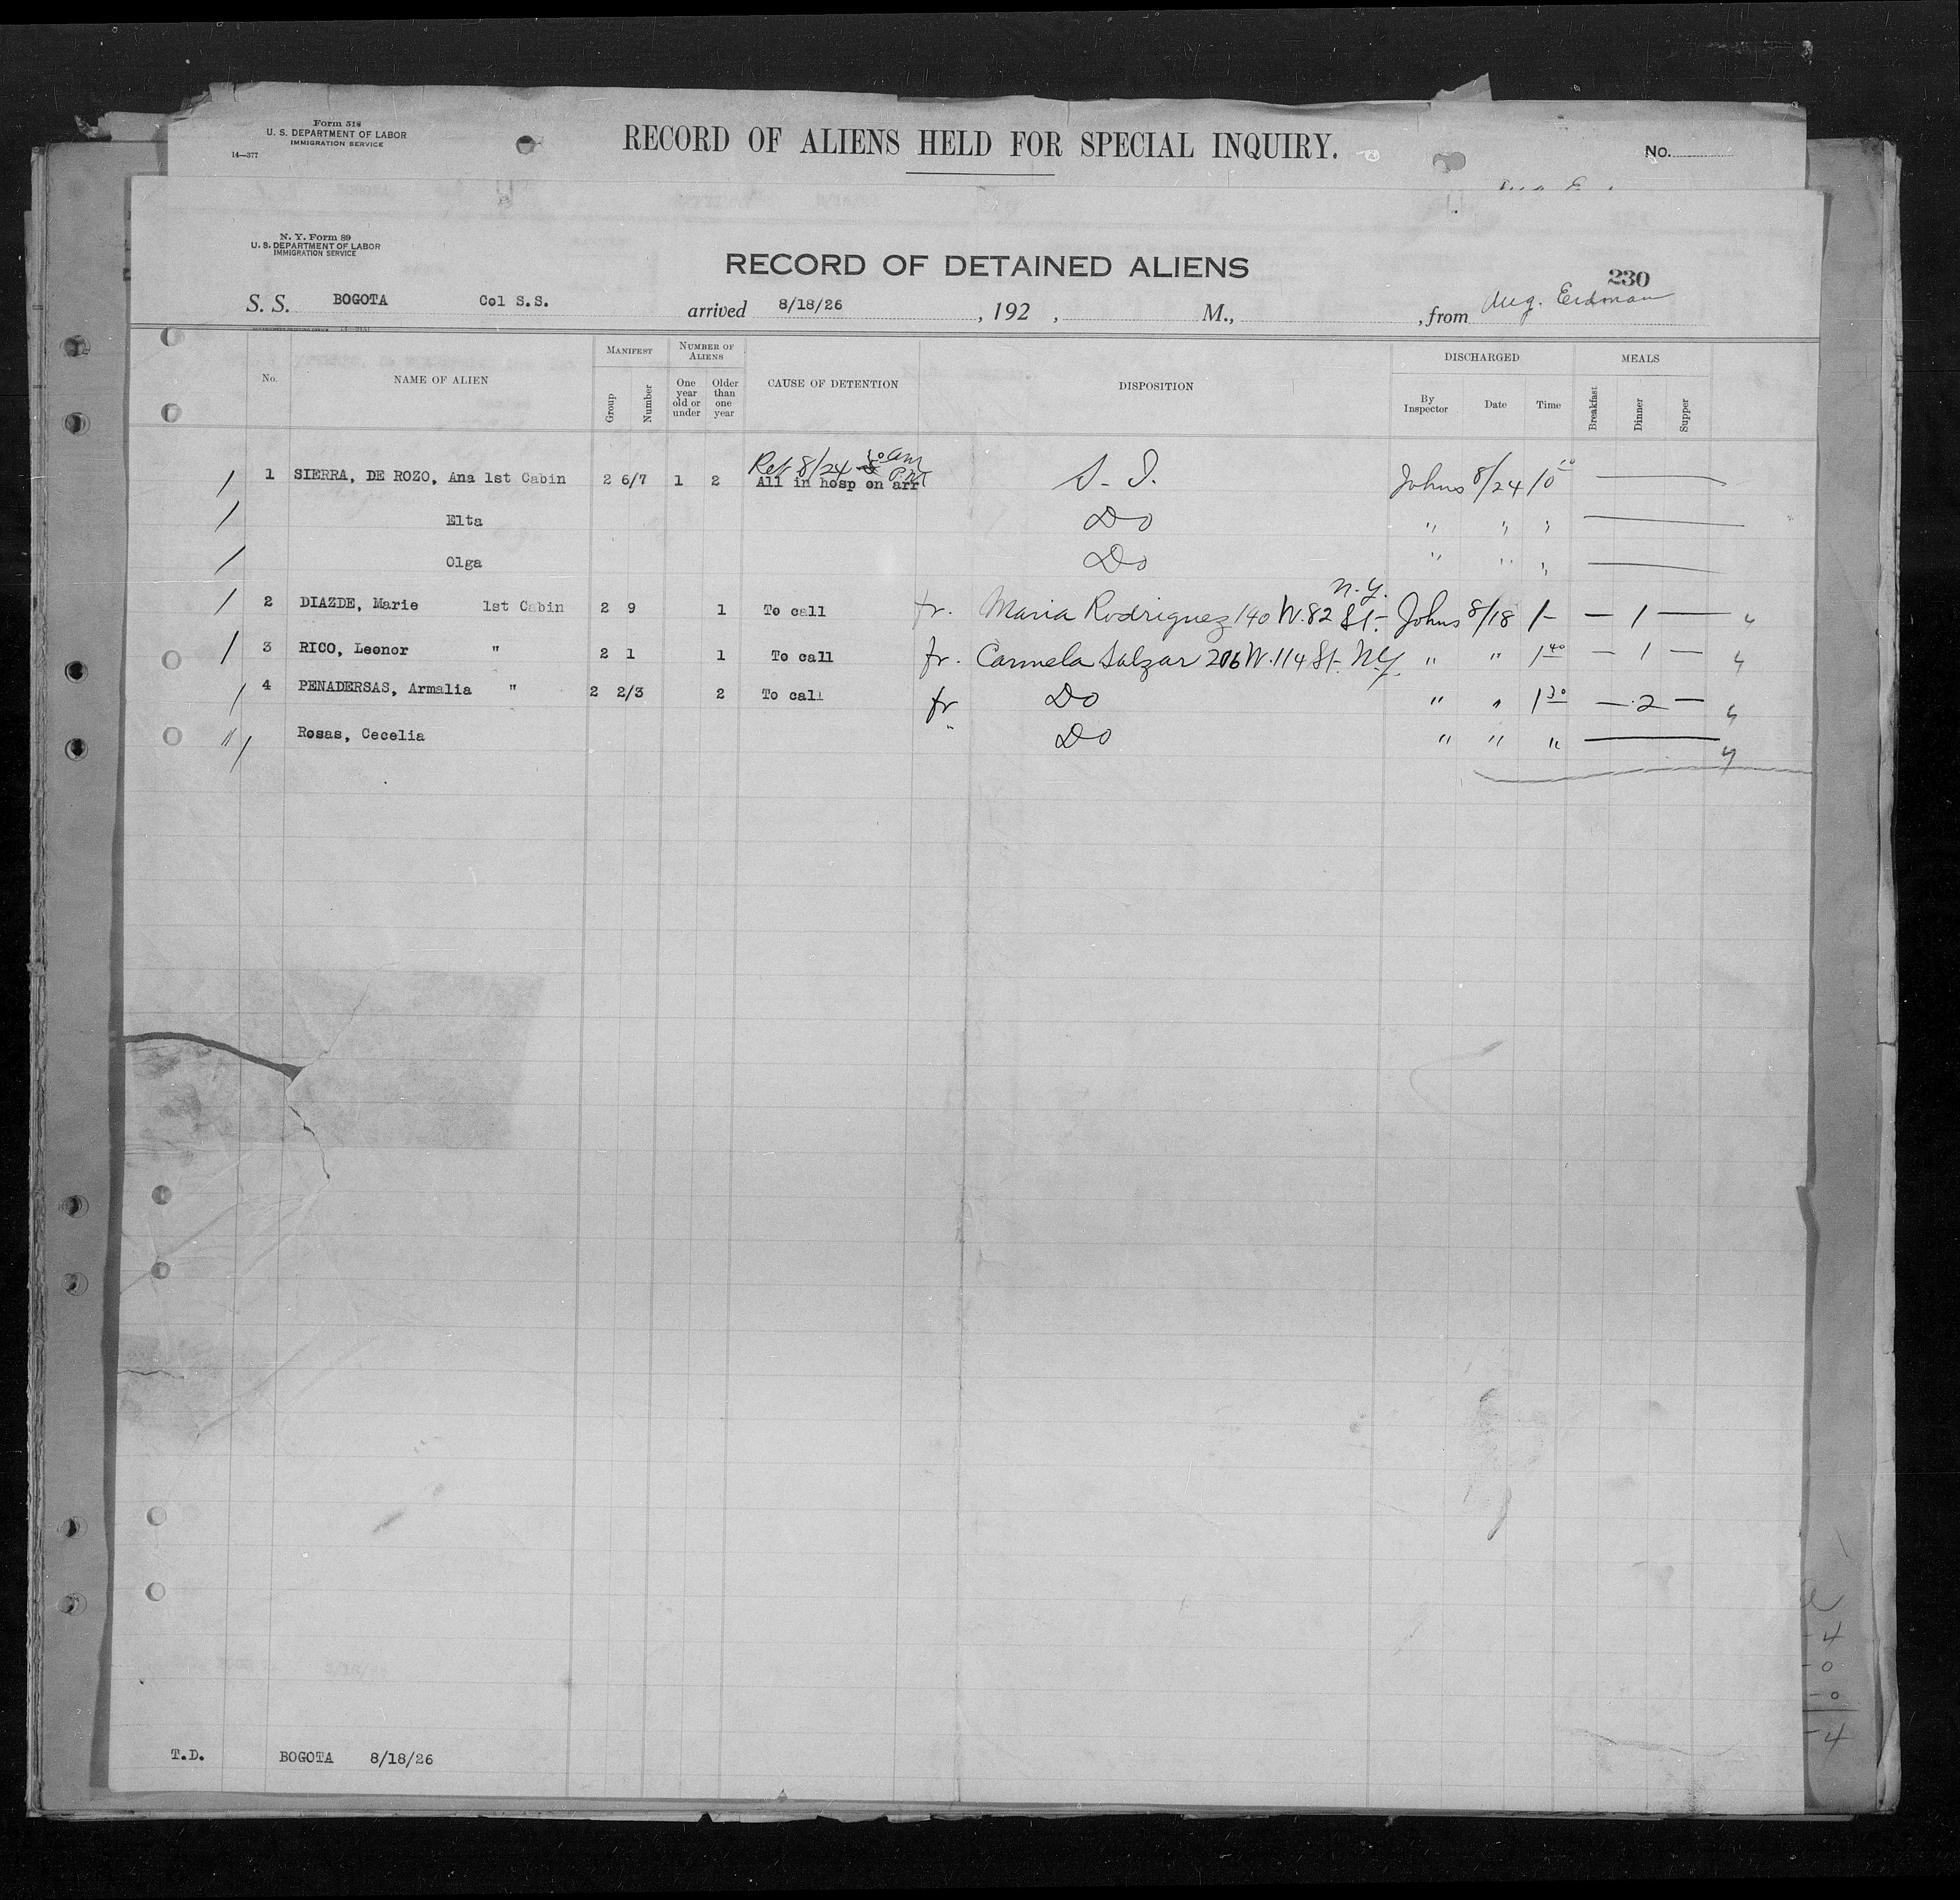 Form 518
U. S. DEPARTMENT OF LABOR
IMMIGRATION SERVICE
14—377
RECORD OF ALIENS HELD FOR SPECIAL INQUIRY.
No.
N. Y. Form 89
U. S. DEPARTMENT OF LABOR
IMMIGRATION SERVICE
RECORD OF DETAINED ALIENS
230
S. S. BOGOTA Col S.S. arrived 8/18/26, 192 , M., , from Aug. Erdman
No. NAME OF ALIEN MANIFEST Group Number NUMBER OF ALIENS One year old or under Older than one year CAUSE OF DETENTION DISPOSITION DISCHARGED By Inspector Date Time MEALS Breakfast Dinner Supper
Rec 8/24 10 am
/ 1 SIERRA, DE ROZO, Ana 1st Cabin 2 6/7 1 2 All in hosp on arr S. I. Johns 8/24 10
/ Elta Do " " "
/ Olga Do " " "
N.Y.
/ 2 DIAZDE, Marie 1st Cabin 2 9 1 To call fr. Maria Rodriguez 140 W. 82 St- Johns 8/18 1- — 1 —
/ 3 RICO, Leonor " 2 1 1 To call fr. Carmela Salzar 206 W. 114 St. N.Y. " " 1 40 — 1 —
/ 4 PENADERSAS, Armalia " 2 2/3 2 To call fr Do " " 1 30 — 2 —
" / Rosas, Cecelia " Do " " "
T.D. BOGOTA 8/18/26
4
- 0
- 0
- 4